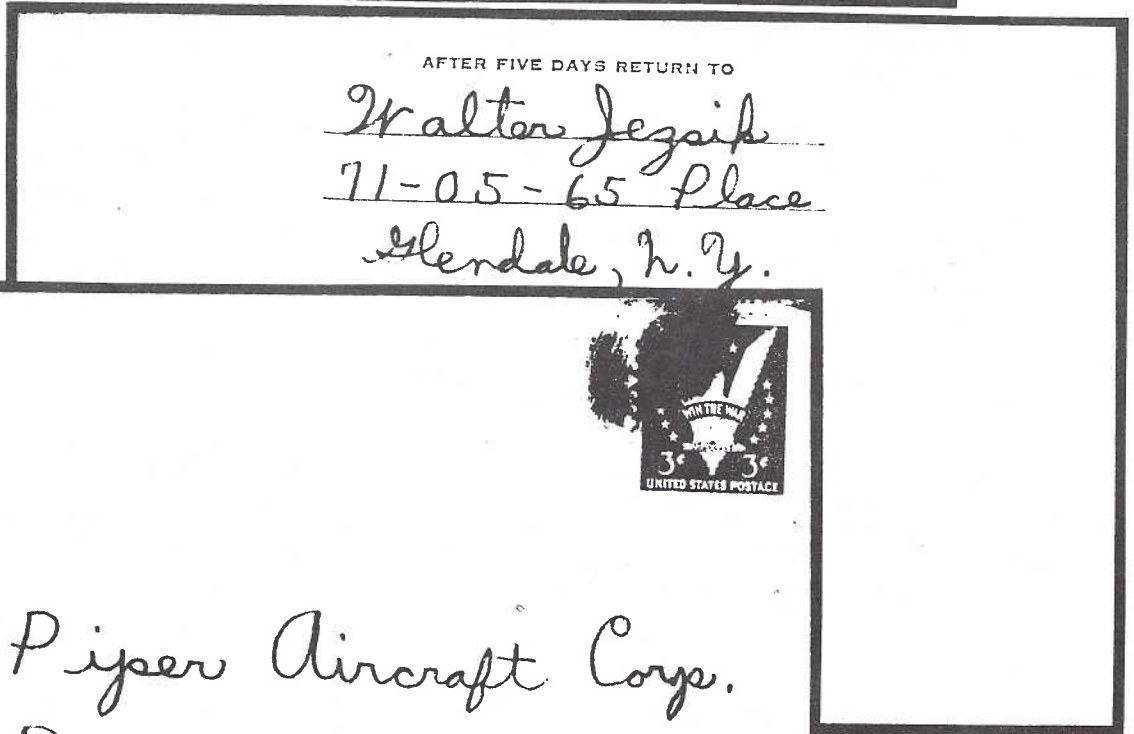 AFTER FIVE DAYS RETURN TO
Walter Jezsik
71-05-65 Place
Glendale, N.Y.
WIN THE WAR
3¢ 3¢
UNITED STATES POSTAGE
Piper Aircraft Corp.